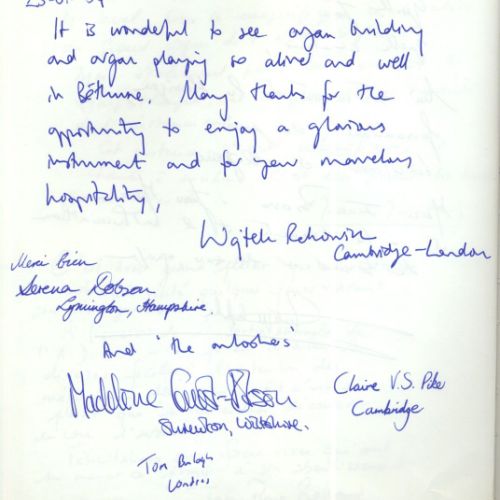 It is wonderful to see organ building
and organ playing so alive and well
in Béthune. Many thanks for the
opportunity to enjoy a glorious
instrument and for your marvelous
hospitality,
Cambridge-London
Merci bien
Serena Dobson
Lymington, Hampshire.
And 'the onlookers'
Madeleine
Claire V.S. Pike
Cambridge
Wiltshire.
Tom
Londres